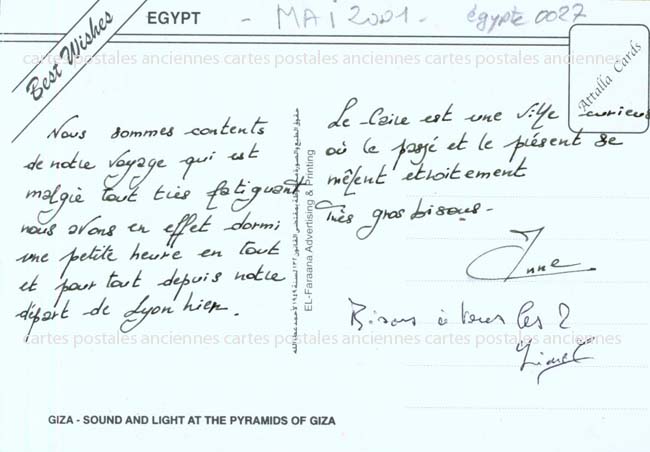 Best Wishes
EGYPT
- MAI 2001 - égypte 0027
Attalla Cards
cartes postales anciennes cartes postales anciennes cartes postales anciennes
Nous sommes contents
de notre voyage qui est
malgré tout très fatiguant
nous avons en effet dormi
une petite heure en tout
et pour tout depuis notre
départ de Lyon hier.
EL-Faraana Advertising & Printing
Le Caire est une ville curieuse
où le passé et le présent se
mêlent etroitement
Très gros bisous -
Anne
Bisous à vous les 2
Lionel
cartes postales anciennes cartes postales anciennes cartes postales anciennes
cartes postales anciennes cartes postales anciennes cartes postales anciennes
GIZA - SOUND AND LIGHT AT THE PYRAMIDS OF GIZA